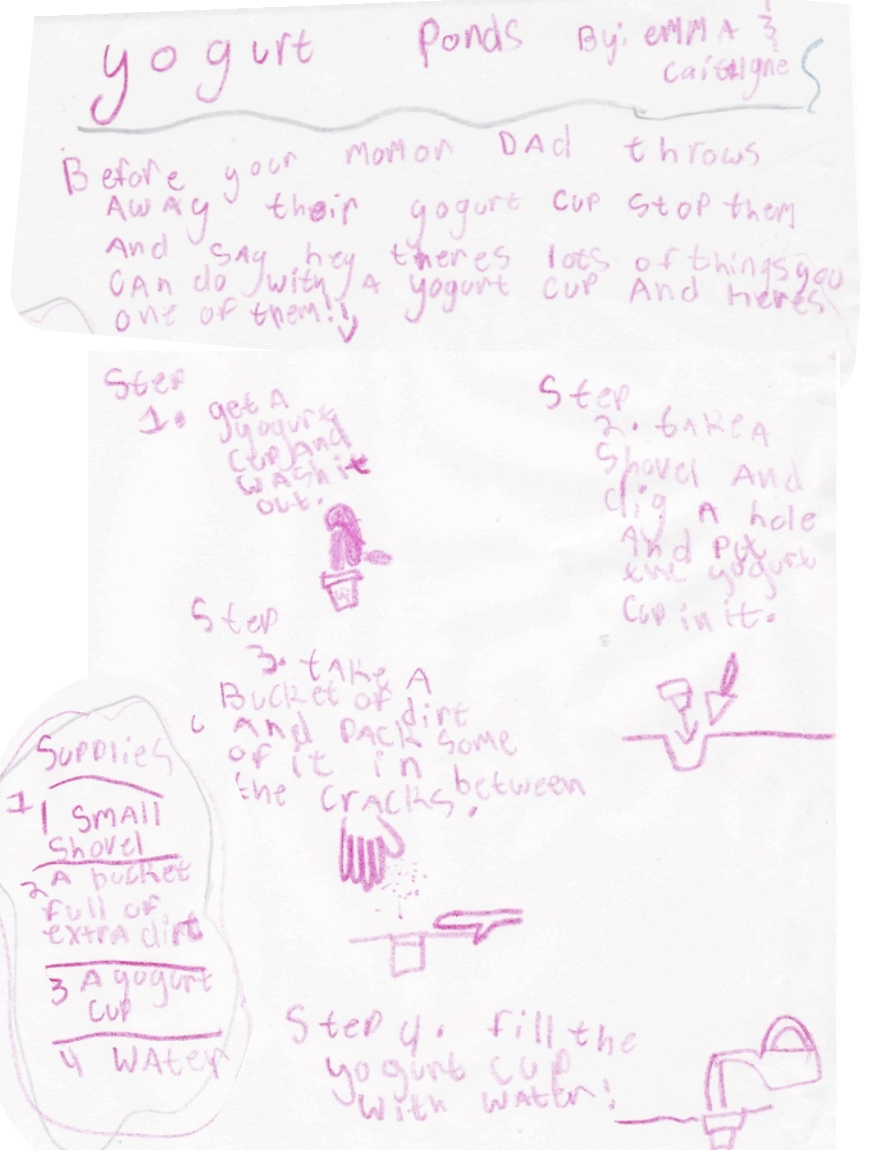 yogurt Ponds By: emma &
Caitlyne
Before your mom or DAD throws
AWAy their yogurt cup stop them
And say hey theres lots of things you
CAn do with A yogurt cup And heres
one of them!!
Step
1. get A
yogurt
Cup And
WAsh it
out.
Step
2. tAke A
Shovel And
dig A hole
And put
the yogurt
Cup in it.
Step
3. tAke A
Bucket of dirt
And pAck some
of it in
the crAcks, between
Supplies
1 1 SmAll
Shovel
2 A bucket
full of
extrA dirt
3 A yogurt
Cup
4 WAter
Step 4. fill the
yogurt cup
With wAter!